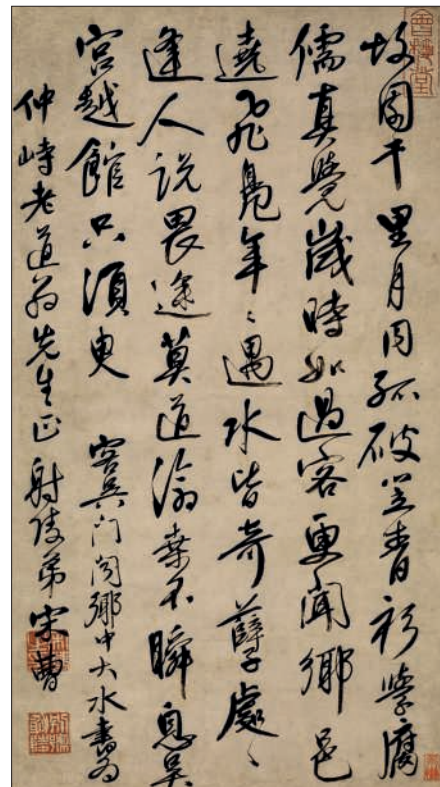 故園千里月同孤破笠青衫學腐
儒真覺歲時如過客更聞鄉邑
遶飛鳧年〻遇水皆奇孽處〻
逢人説畏途莫道滄桑不瞬息吳
宮越館只須臾 客吳門聞鄉中大水書為
仲峙老道翁先生正 射陵弟宋曹